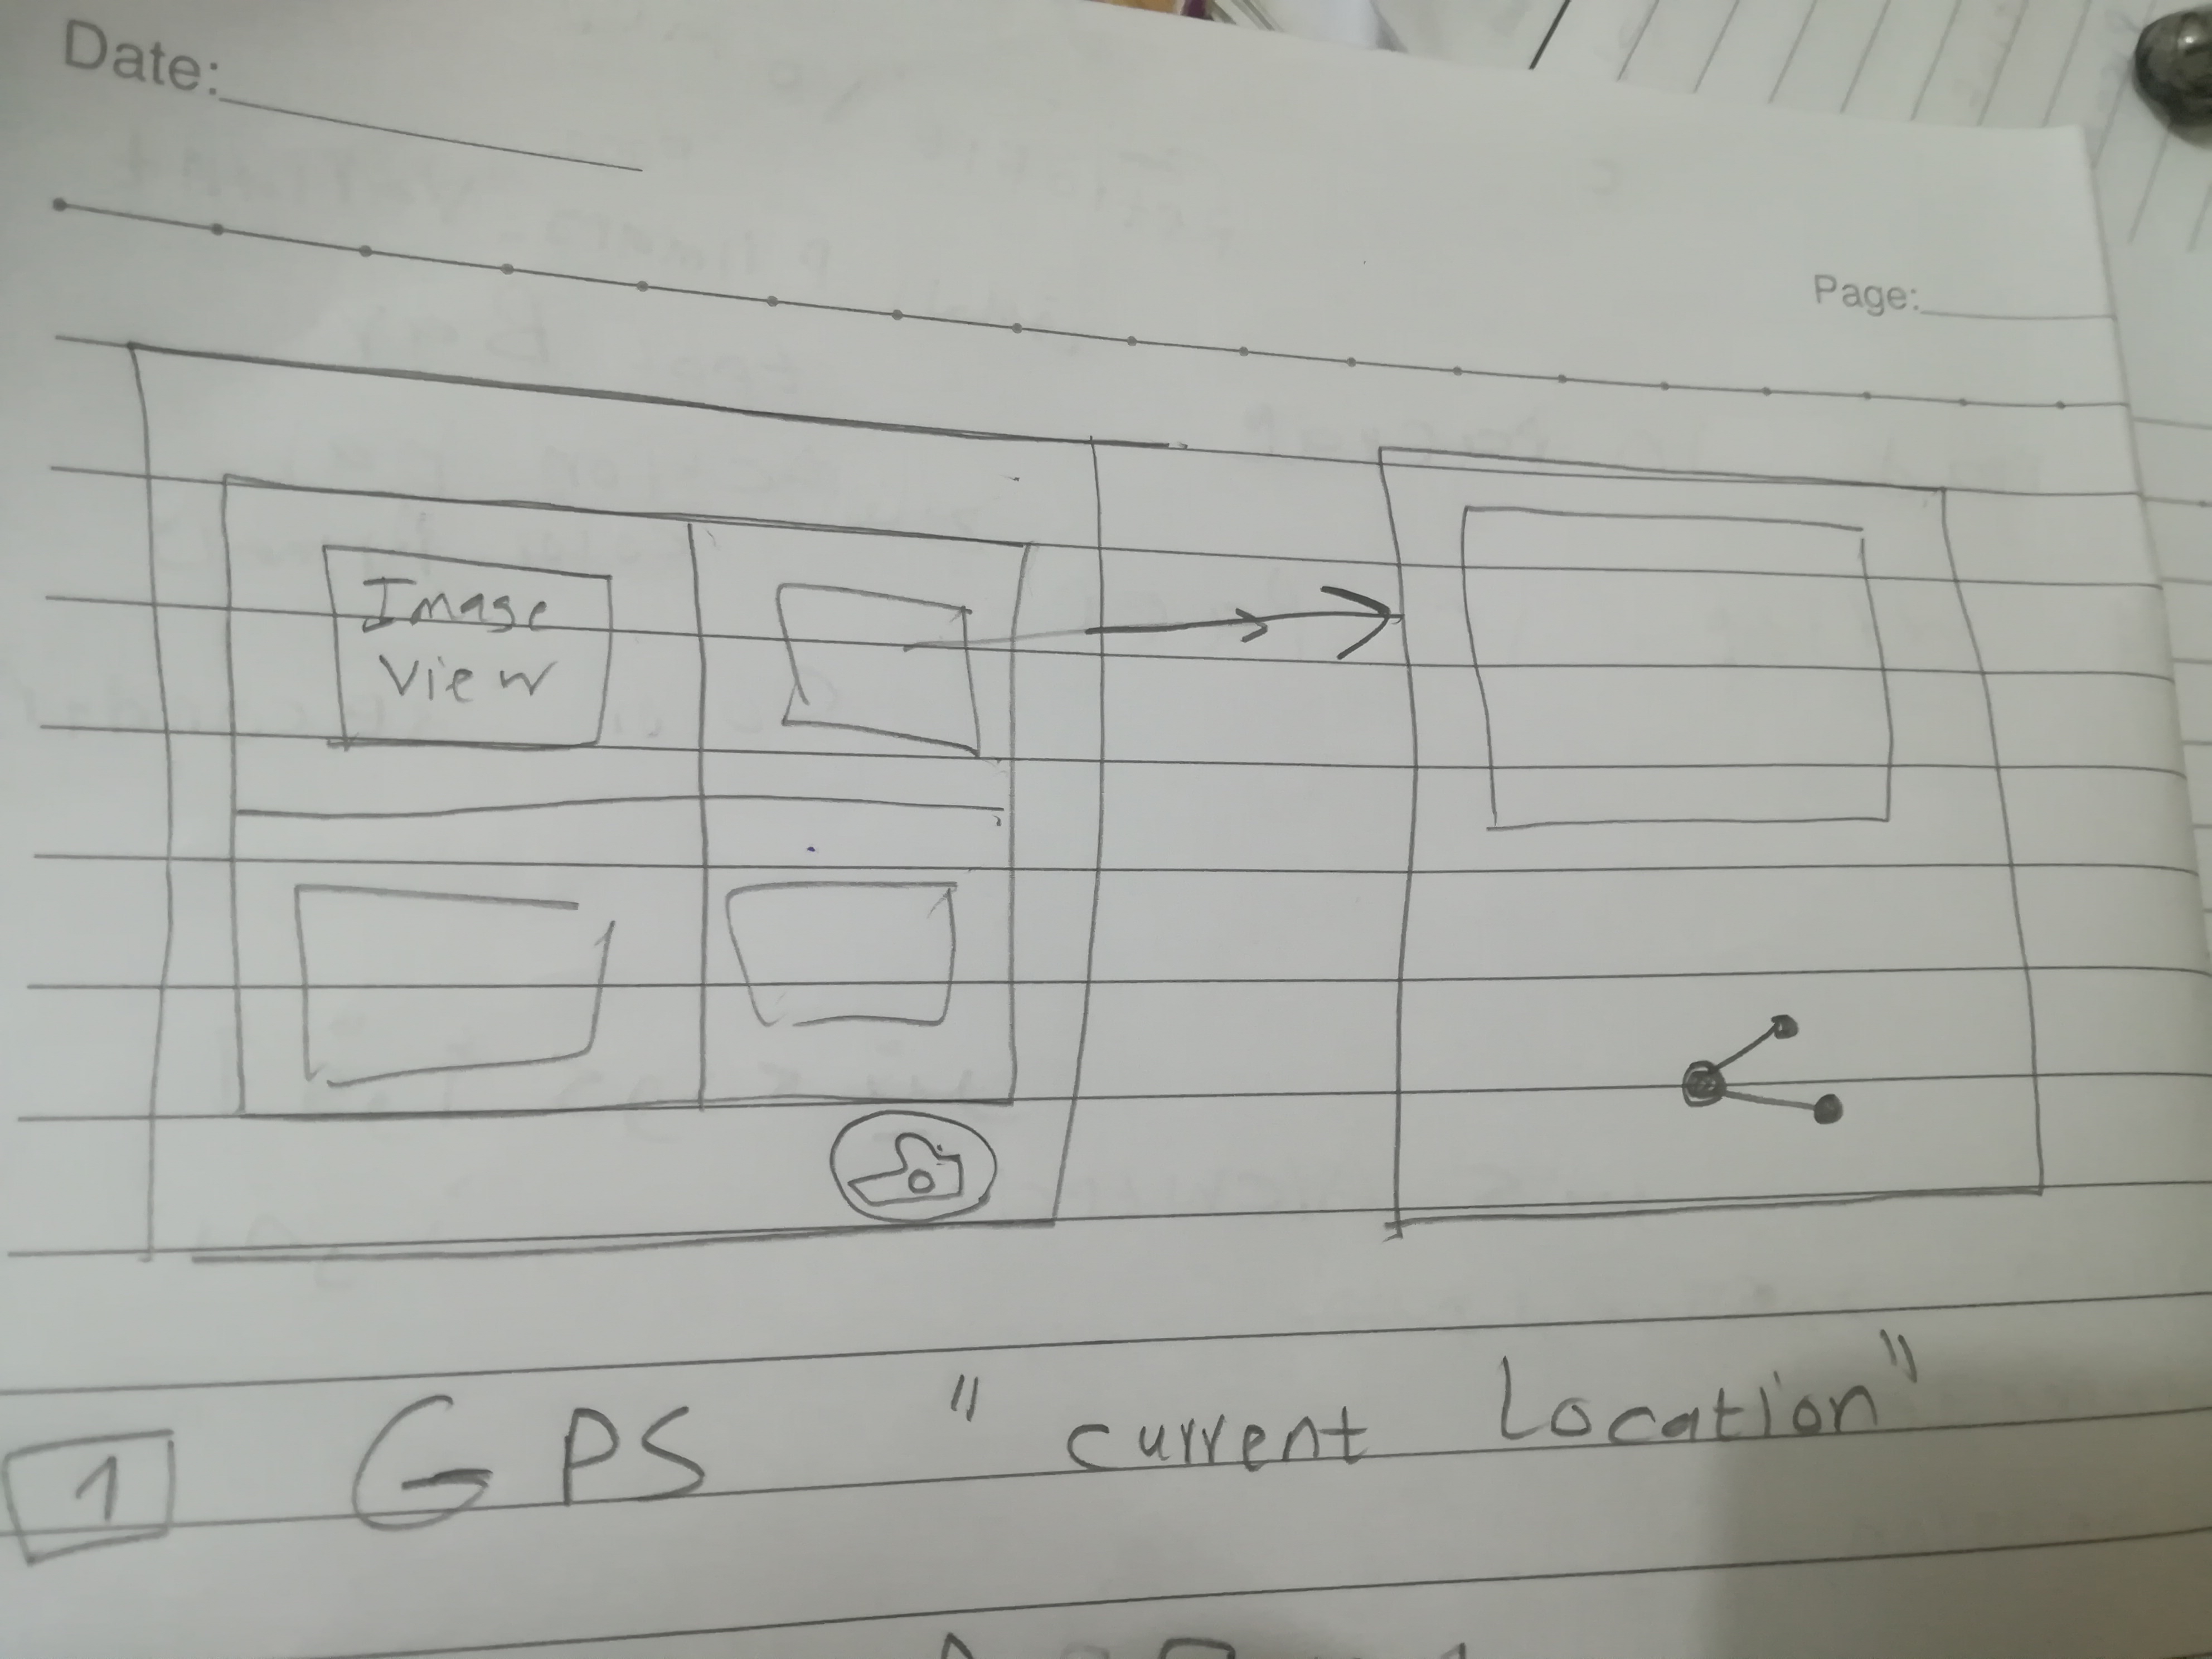 Date:
Page:
Image
View
1 GPS "current Location"